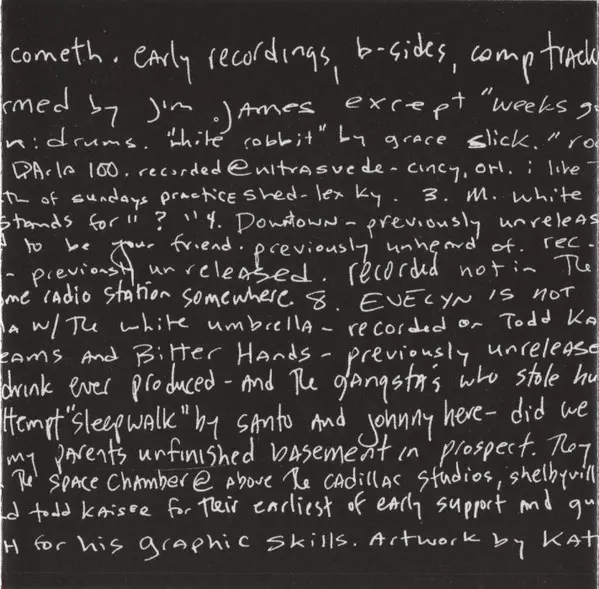 cometh. early recordings, b-sides, comp track
rmed by Jim James except "weeks g
n: drums. "white rabbit" by grace slick. "ro
DArla 100. recorded @ ultrasuede - cincy, OH. i like
th of sundays practice shed - lex ky. 3. M. white
stands for "?" 4. Downtown - previously unreleas
d to be your friend. previously unheard of. rec.
- previously unreleased. recorded not in The
ome radio station somewhere 8. EVELYN IS NOT
la w/ The white umbrella - recorded on Todd Ka
eams And Bitter Hands - previously unrelease
drink ever produced - And The gangsta's who stole hu
ttempt "sleepwalk" by santo and johnny here - did we
my parents unfinished basement in prospect. They
The space chamber @ above The cadillac studios, shelbyvill
d todd kaiser for their earliest of early support and gu
H for his graphic skills. Artwork by Kat